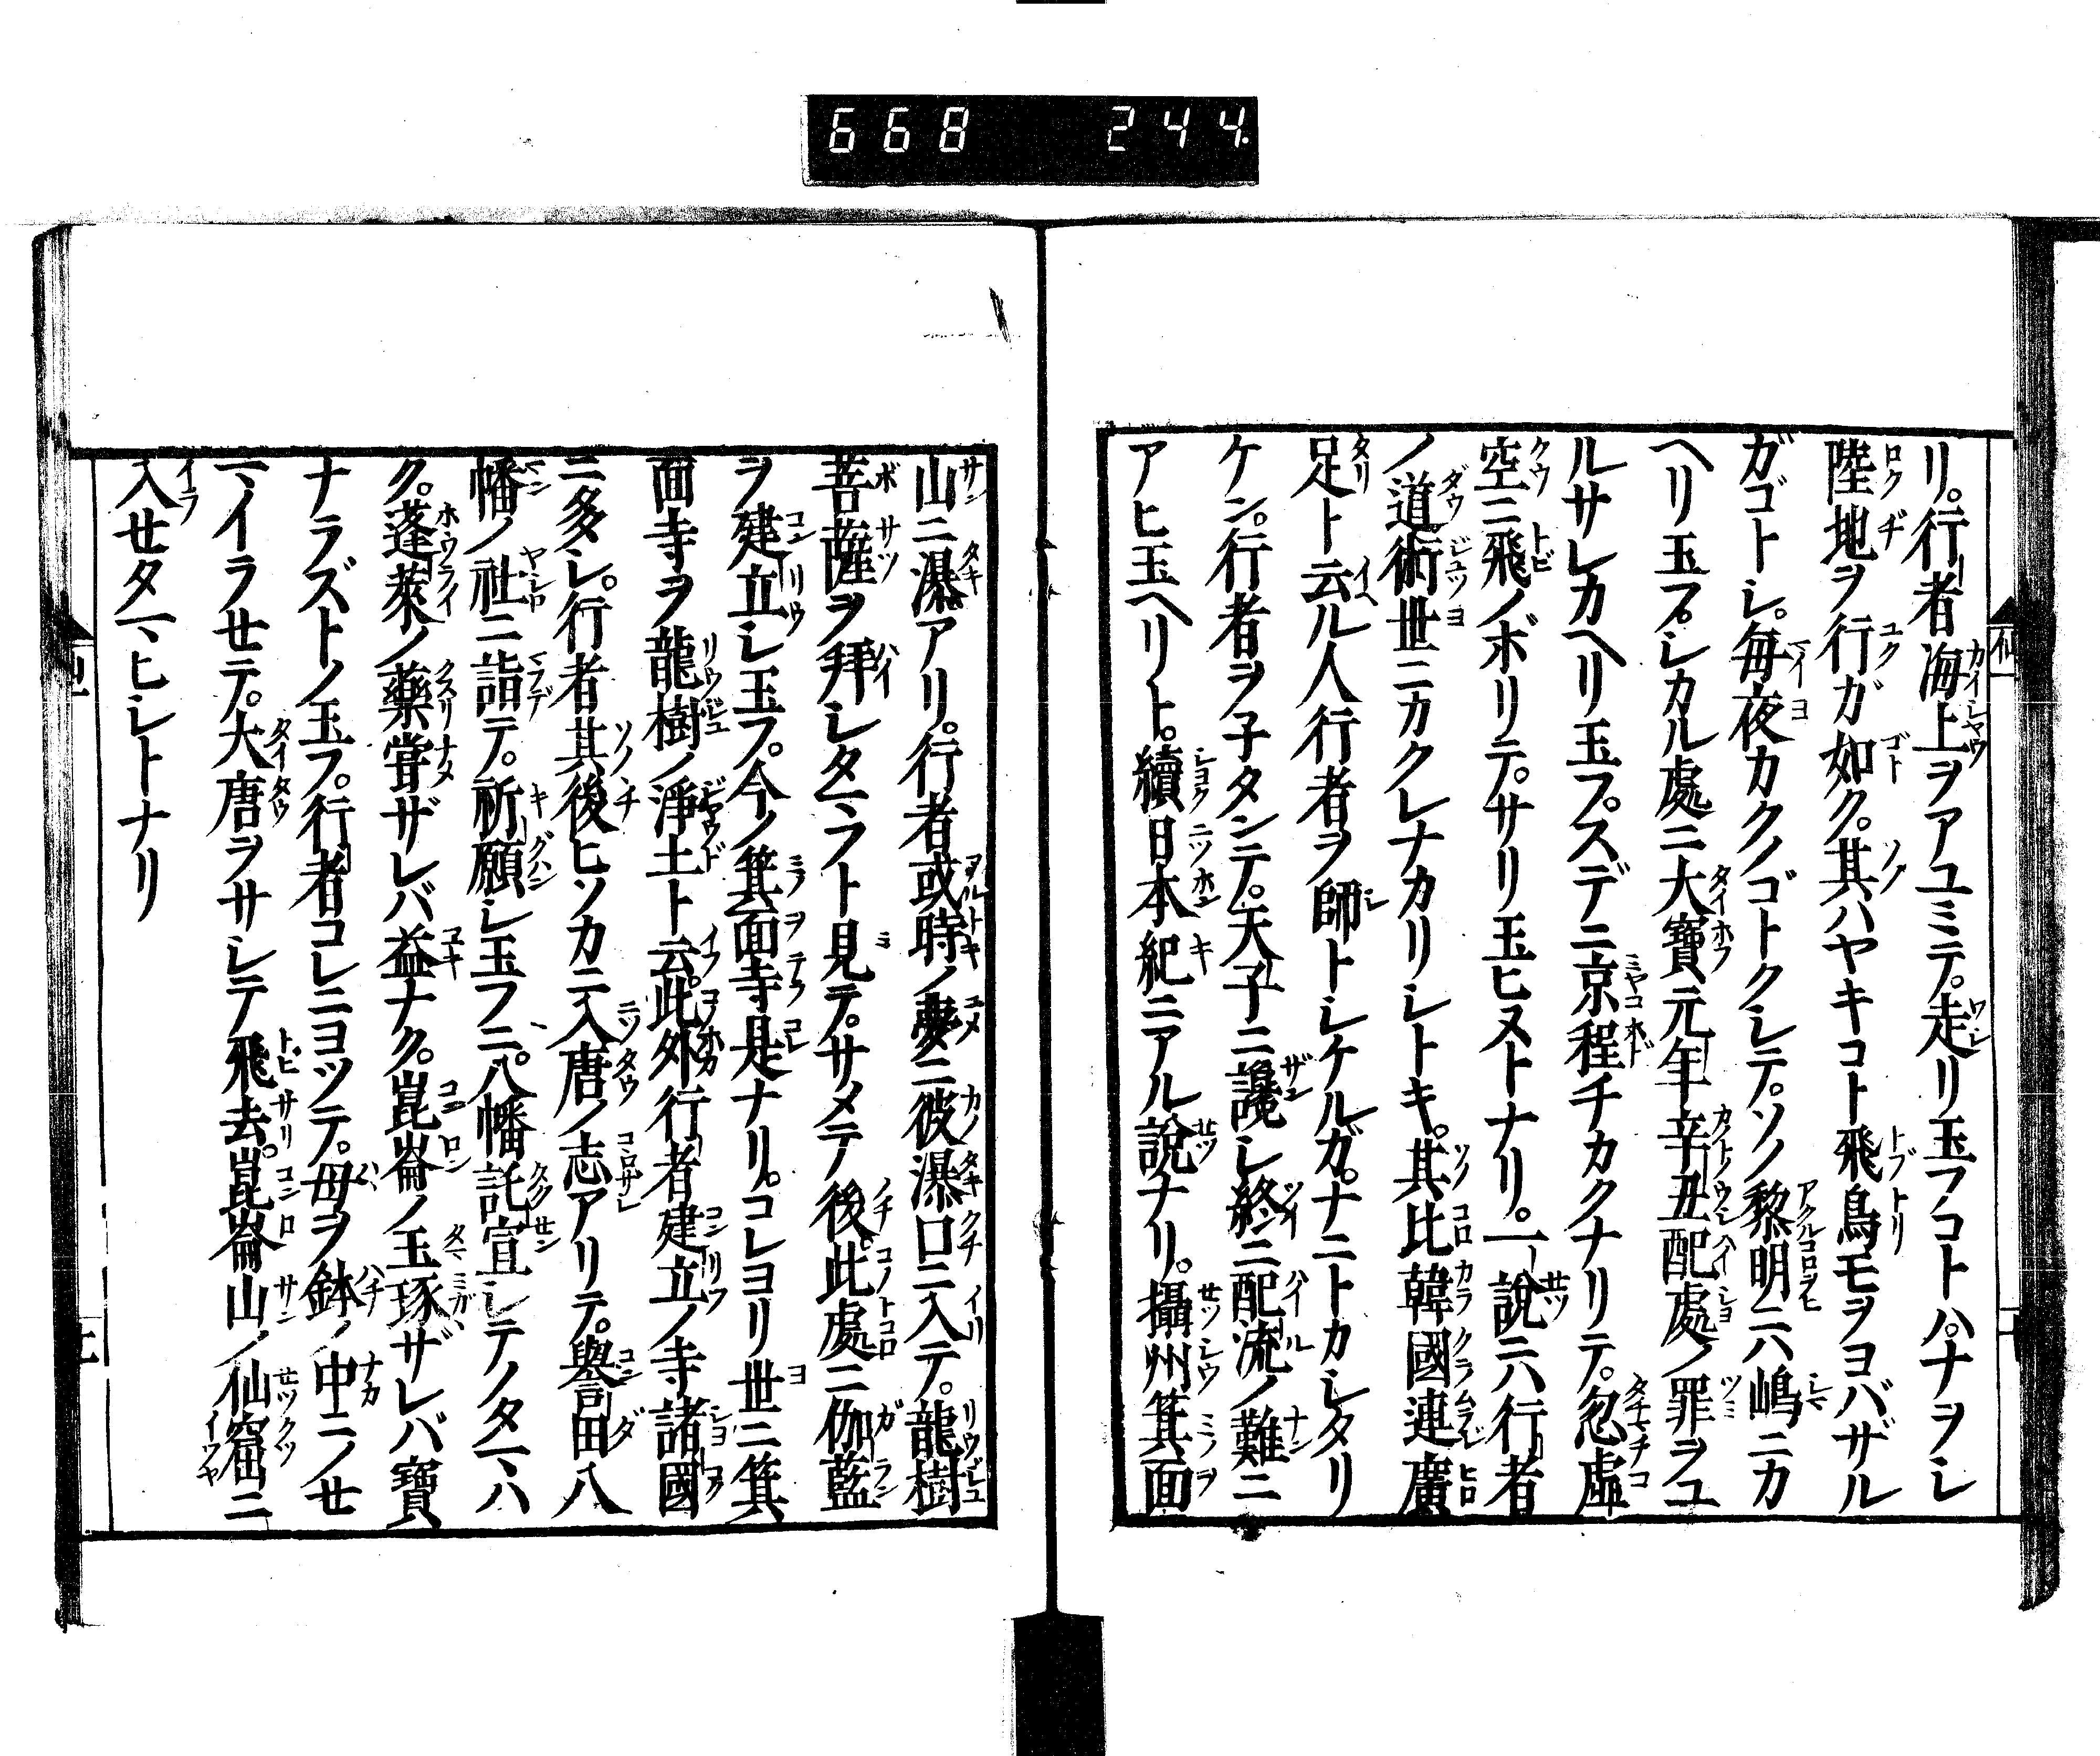 668 244.
リ。行者海上ヲアユミテ。走リ玉フコトハ。ナヲシ
陸地ヲ行ガ如ク。其ハヤキコト飛鳥モヲヨバザル
ガゴトシ。毎夜カクノゴトクシテ。ソノ黎明ニハ嶋ニカ
ヘリ玉フ。シカル處ニ大寶元年辛丑配處ノ罪ヲユ
ルサレカヘリ玉フ。スデニ京程チカクナリテ。忽虛
空ニ飛ノボリテ。サリ玉ヒヌトナリ。一說ニハ行者
ノ道術世ニカクレナカリシトキ。其比韓國連廣
足ト云ル人行者ヲ師トシケルガ。ナニトカシタリ
ケン。行者ヲ子タンテ。天子ニ讒シ終ニ配流ノ難ニ
アヒ玉ヘリト。續日本紀ニアル說ナリ。攝州箕面
山ニ瀑アリ。行者或時ノ夢ニ彼瀑口ニ入テ。龍樹
菩薩ヲ拜シタマフト見テ。サメテ後。此處ニ伽藍
ヲ建立シ玉フ。今ノ箕面寺是ナリ。コレヨリ世ニ箕
面寺ヲ龍樹ノ淨土ト云。此外行者建立ノ寺諸國
ニ多シ。行者其後ヒソカニ入唐ノ志アリテ。譽田八
幡ノ社ニ詣テ。祈願シ玉フニ。八幡託宣シテノタマハ
ク。蓬萊ノ藥嘗ザレバ益ナク。崑崙ノ玉琢ザレバ寶
ナラズトノ玉フ。行者コレニヨツテ。母ヲ鉢ノ中ニノセ
マイラセテ。大唐ヲサシテ飛去。崑崙山ノ仙窟ニ
入セタマヒシトナリ